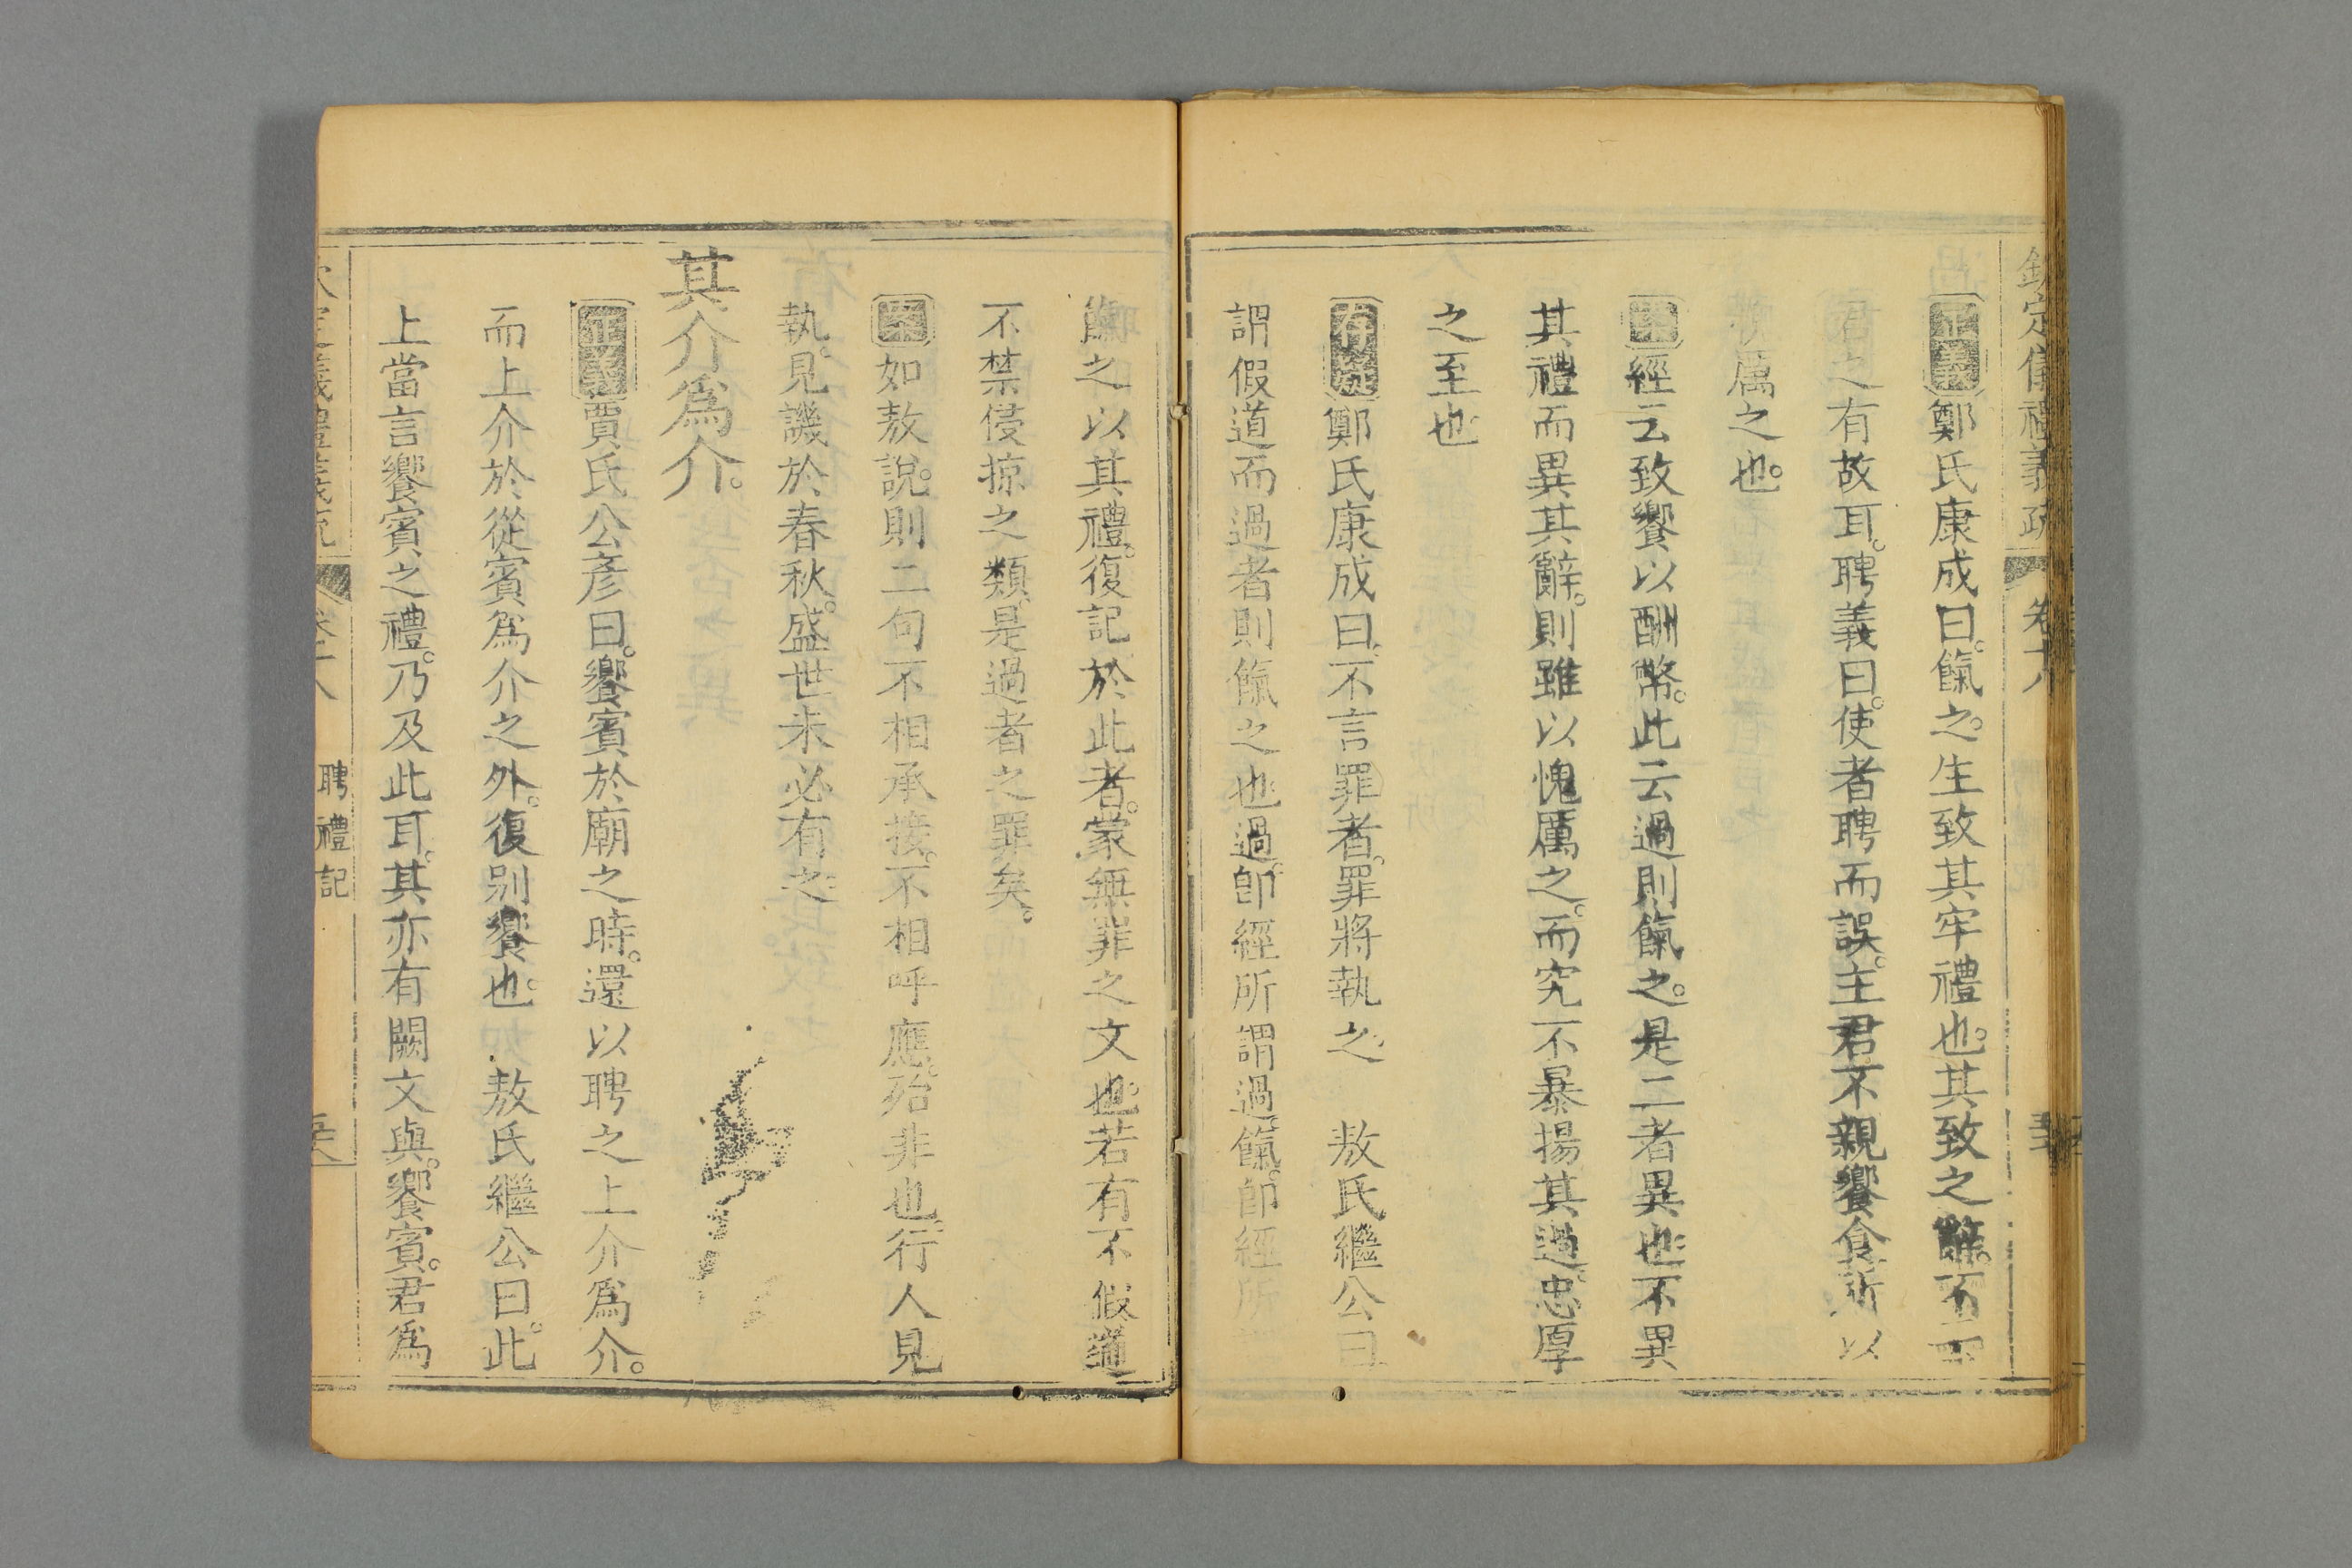 欽定儀禮義疏 卷十八
正義鄭氏康成曰。餼之。生致其牢禮也。其致之辭。不云
君之有故耳。聘義曰。使者聘而誤。主君不親饗食。所以
愧厲之也。
案經云致饗以酬幣。此云過則餼之。是二者異也。不異
其禮而異其辭。則雖以愧厲之。而究不暴揚其過。忠厚
之至也
存疑鄭氏康成曰。不言罪者。罪將執之 敖氏繼公曰
謂假道而過者則餼之也。過。卽經所謂過。餼。卽經所
餼之以其禮。復記於此者。蒙無罪之文也。若有不假道
不禁侵掠之類。是過者之罪矣。
案如敖說。則二句不相承接。不相呼應。殆非也。行人見
執。見譏於春秋。盛世未必有之
其介爲介。
正義賈氏公彥曰。饗賓於廟之時。還以聘之上介爲介。
而上介於從賓爲介之外。復别饗也。 敖氏繼公曰。此
上當言饗賓之禮。乃及此耳。其亦有闕文與。饗賓。君爲
欽定儀禮義疏 卷十八 聘禮記